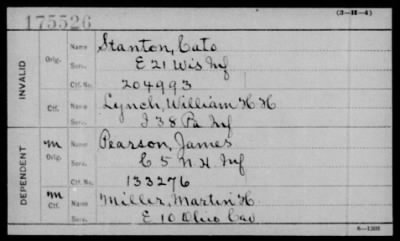 175526
(3—H—4)
INVALID
Orig.
Name Stanton, Cato
Serv. E 21 Wis Inf
Ctf. No. 204993
Ctf.
Name Lynch, William H H
Serv. I 38 Pa Inf
DEPENDENT
M
Orig.
Name Pearson, James
Serv. C 5 N H Inf
Ctf. No. 133276
M
Ctf.
Name Miller, Martin H
Serv. E 10 Ohio Cav
6—1308